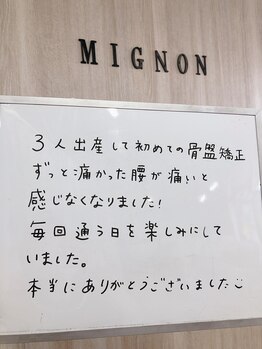 MIGNON
3人出産して初めての骨盤矯正
ずっと痛かった腰が痛いと
感じなくなりました!
毎回通う日を楽しみにして
いました。
本当にありがとうございました